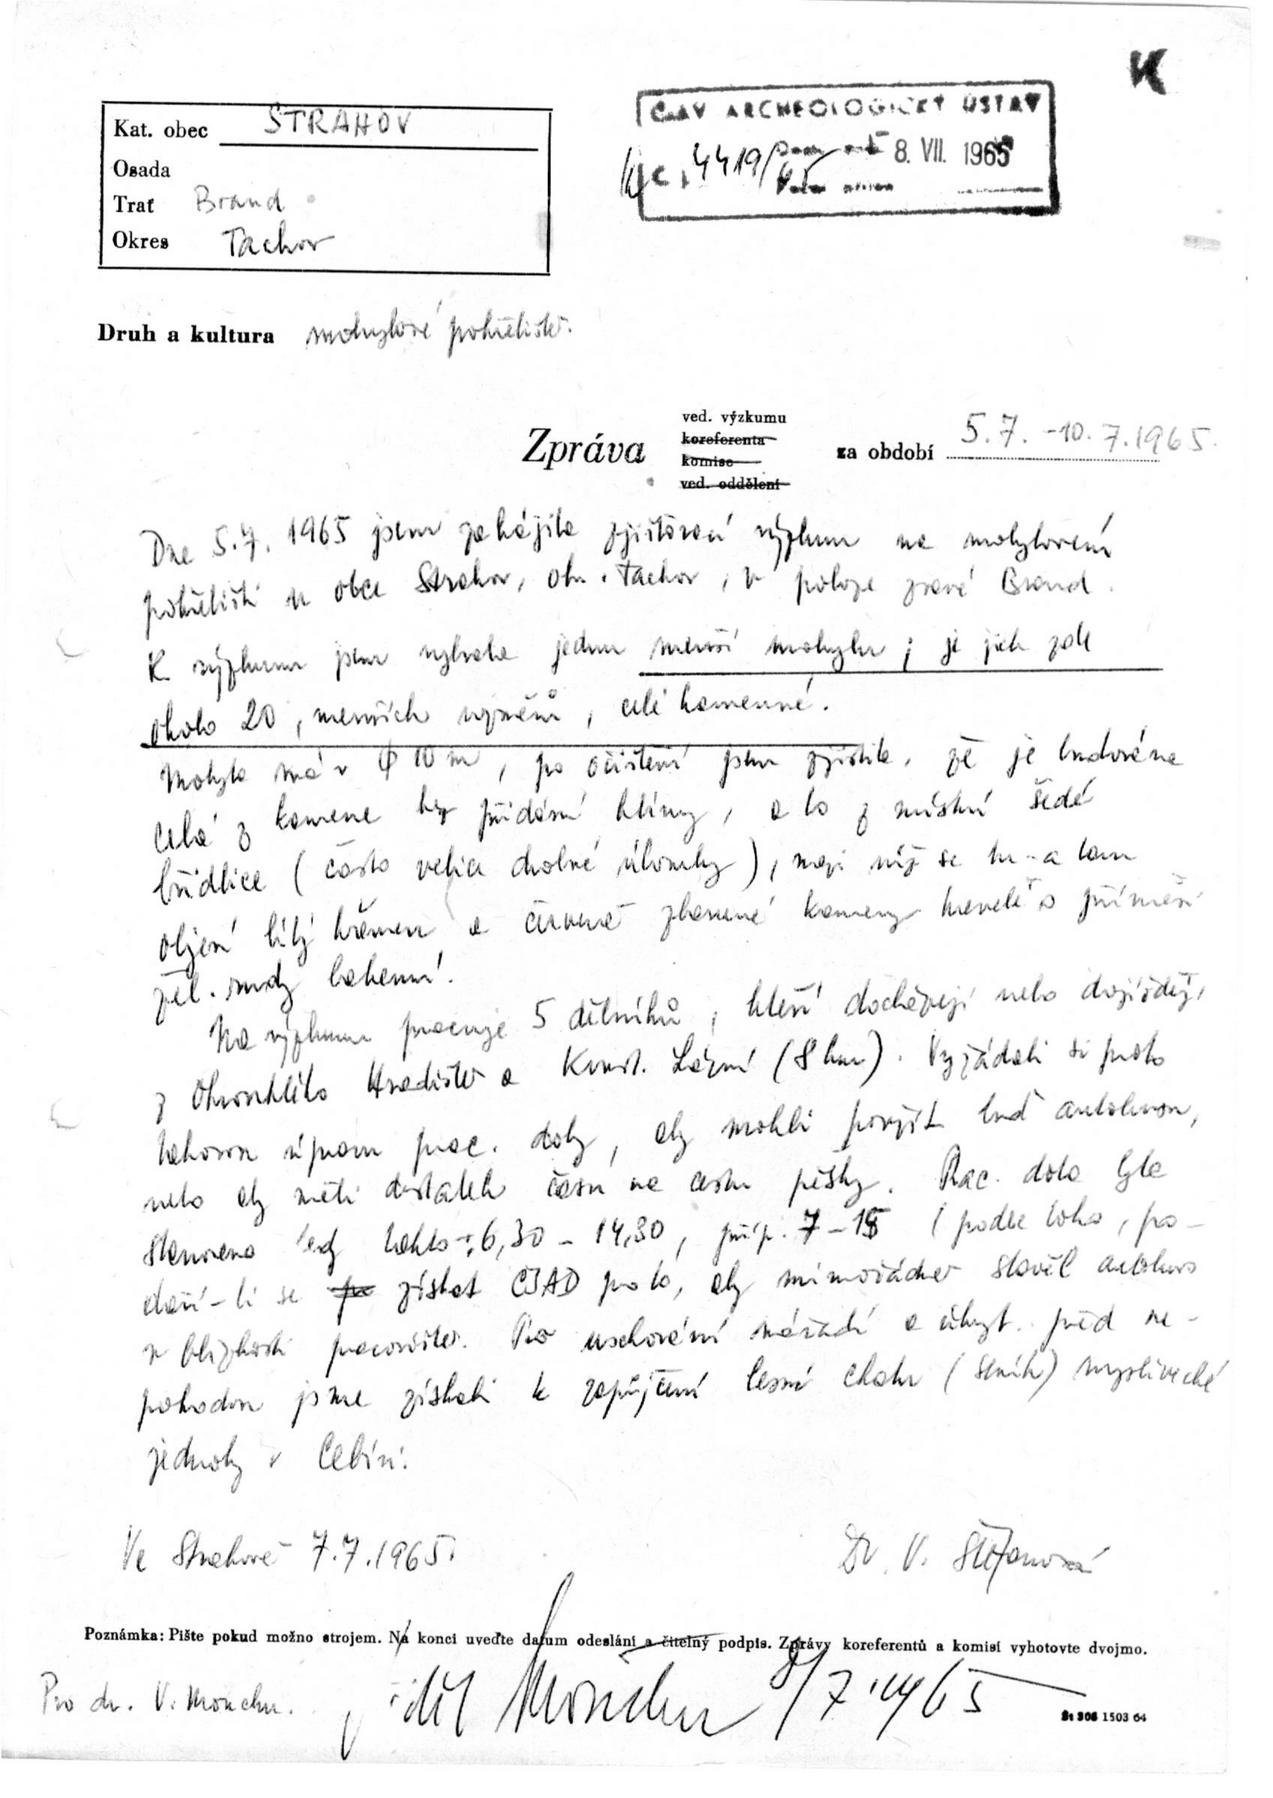 K
Kat. obec STRAHOV
Osada
Trať Brand
Okres Tachov
ČSAV ARCHEOLOGICKÝ ÚSTAV
8. VII. 1965
4419/65
Druh a kultura mohylové pohřebiště.
Zpráva ved. výzkumu koreferenta komise ved. oddělení za období 5.7.-10.7.1965.
Dne 5.7. 1965 jsem zahájila zjišťovací výzkum na mohylovém
pohřebišti u obce Strahov, okr. Tachov, v poloze zvané Brand.
K výzkumu jsem vybrala jednu menší mohylu; je jich zde
okolo 20, menších rozměrů, celé kamenné.
Mohyla má v Φ 10 m, po očištění jsem zjistila, že je budována
celá z kamene bez přidání hlíny, a to z místní šedé
břidlice (často velice drobné úlomky), mezi níž se tu a tam
objeví bílý křemen a červeně zbarvené kameny s příměsí
žel. rudy bahenní.
Na výzkumu pracuje 5 dělníků, kteří docházejí nebo dojíždějí
z Okrouhlého Hradiště a Konst. Lázní (8 km). Vyžádali si proto
takovou úpravu prac. doby, aby mohli použít buď autobusu,
nebo aby měli dostatek času na cestu pěšky. Prac. doba byla
stanovena tedy takto: 6,30 - 14,30, příp. 7-15 (podle toho, po-
daří-li se získat ČSAD pro to, aby mimořádně stavěl autobus
v blízkosti pracoviště. Pro uschování nářadí a úkryt před ne-
pohodou jsme získali k zapůjčení lesní chatu (seník) myslivecké
jednoty v Cebivi.
Ve Strahově 7.7.1965.
Dr. V. Štefanová
Poznámka: Pište pokud možno strojem. Na konci uveďte datum odeslání a čitelný podpis. Zprávy koreferentů a komisí vyhotovte dvojmo.
Pro dr. V. Mouchu.
8/7 1965
1503 64